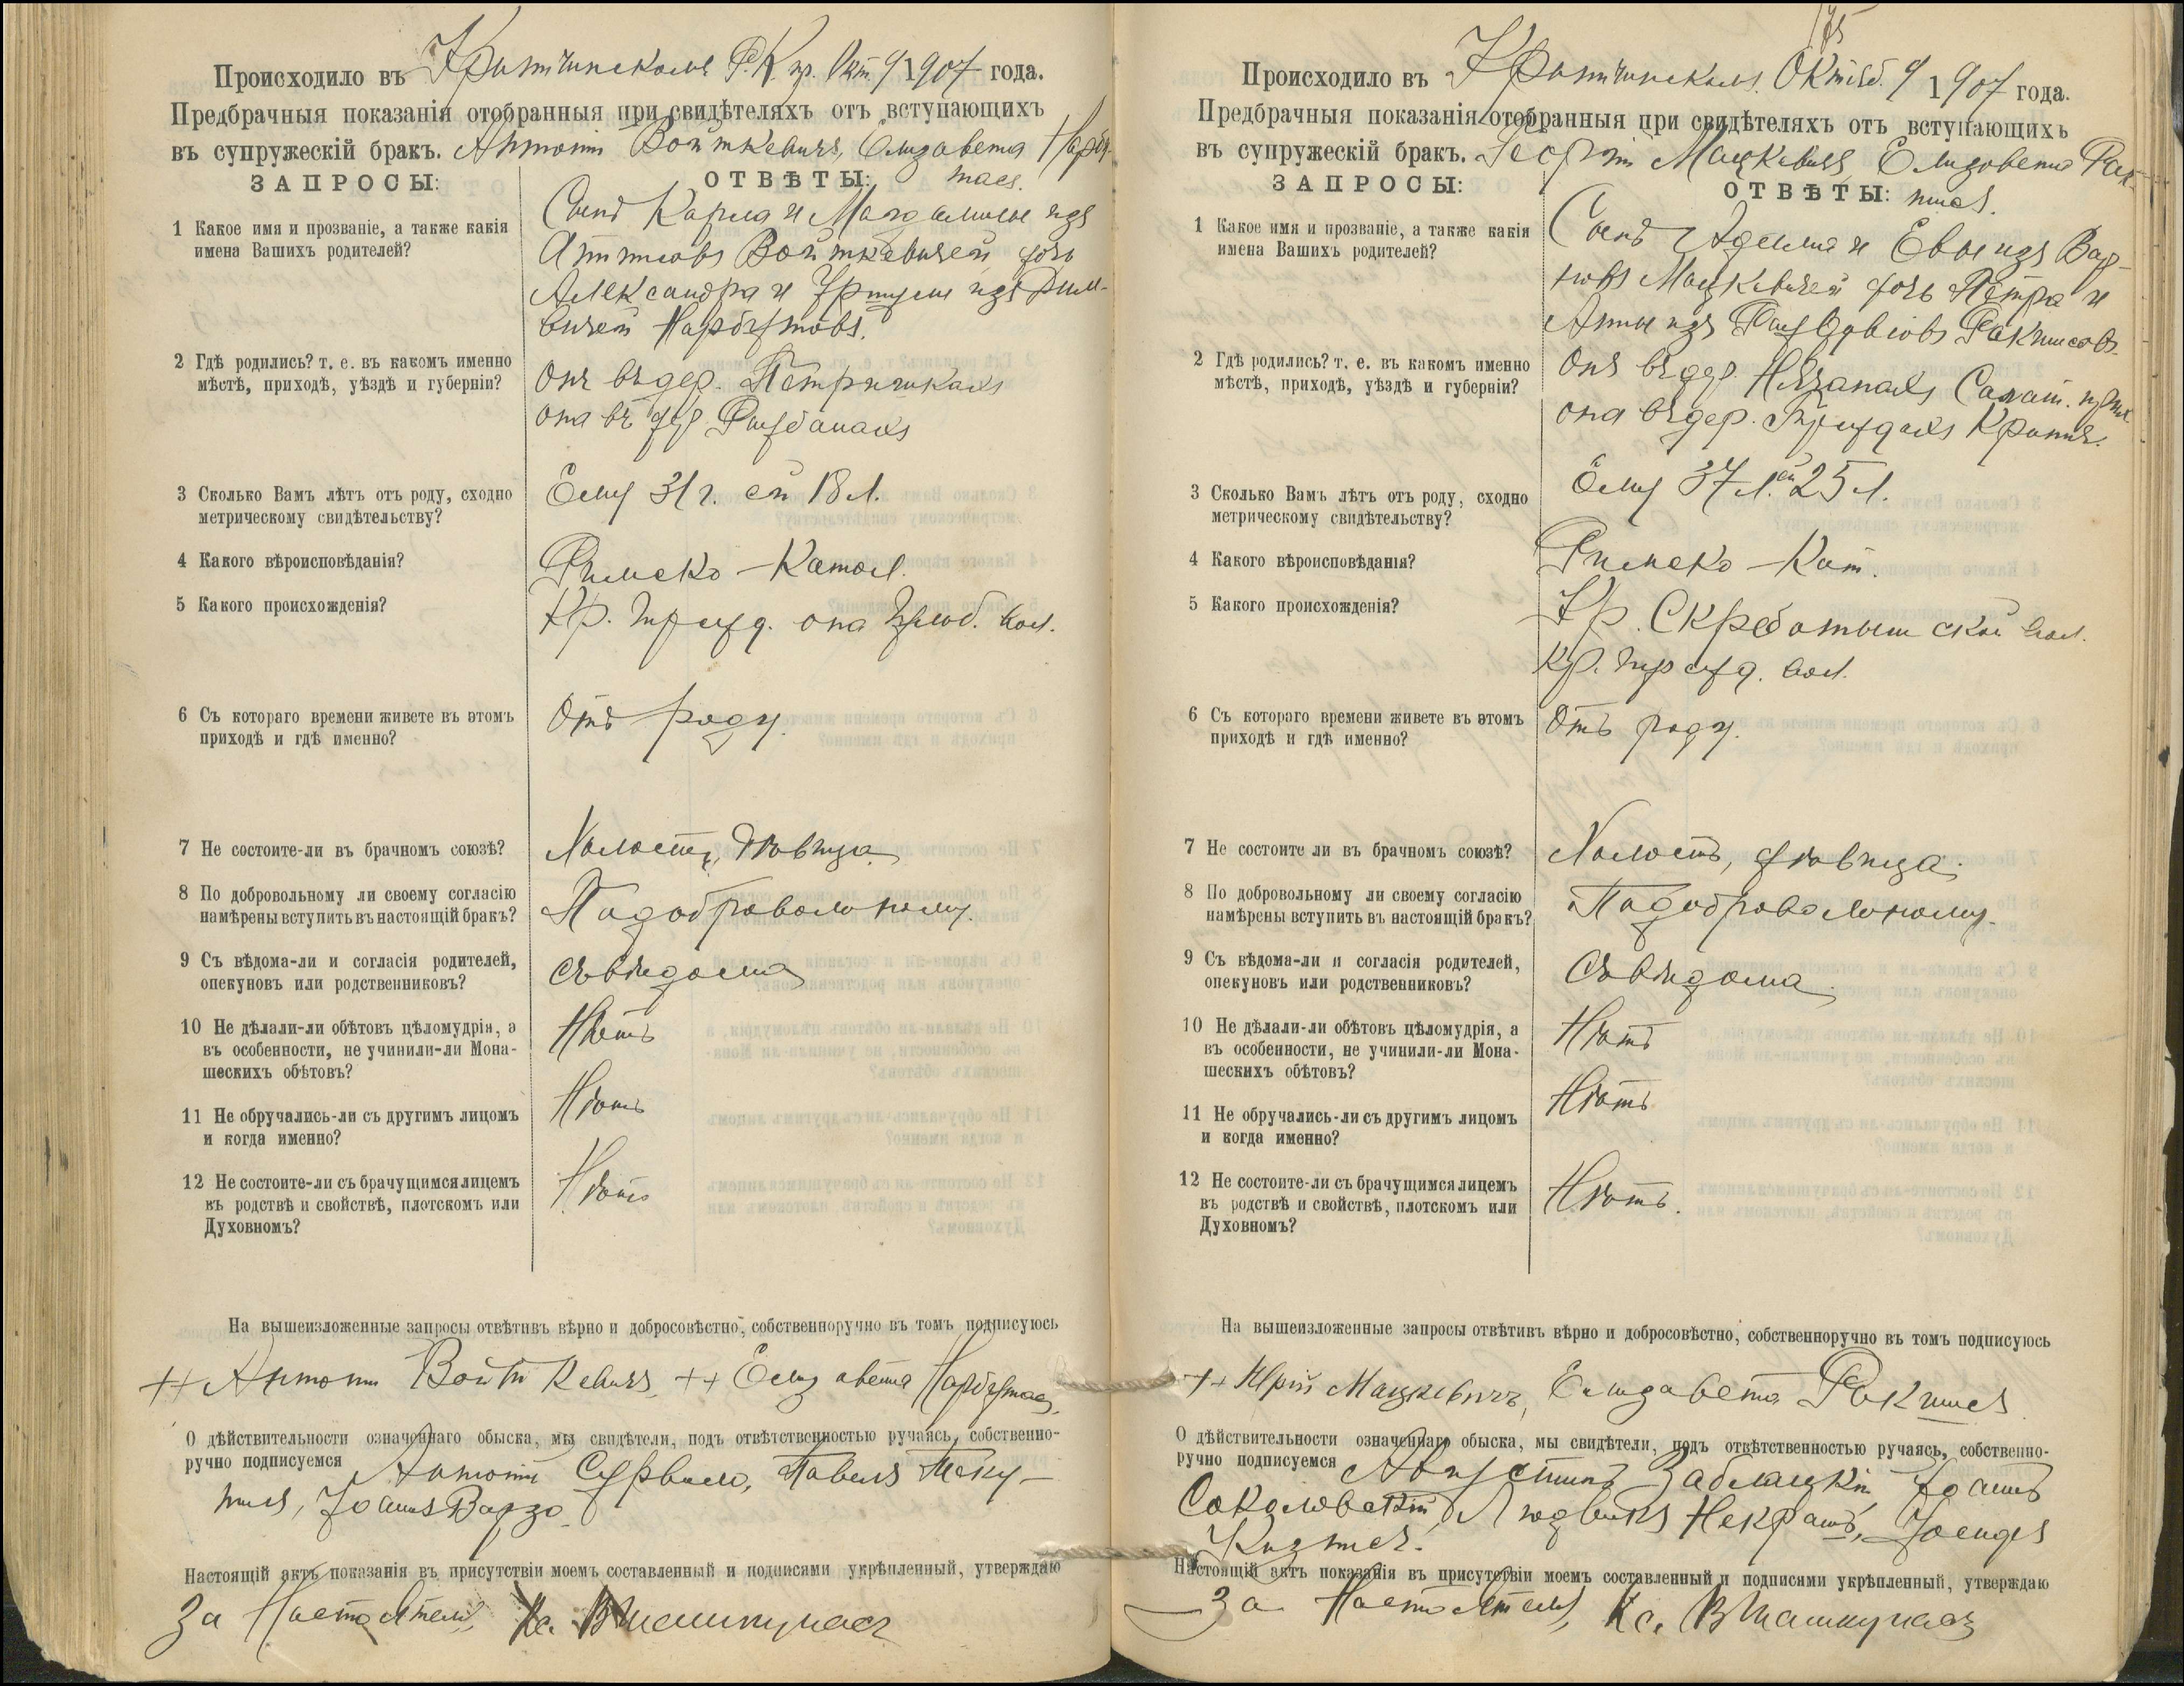 Происходило въ Крытчинскомъ Р. К. пр. Окт. 9 1907 года.
Предбрачныя показанія отобранныя при свидѣтеляхъ отъ вступающихъ
въ супружескій бракъ. Антоній Войткевичъ, Елизавета
ЗАПРОСЫ: ОТВѢТЫ:
1 Какое имя и прозваніе, а также какія
имена Вашихъ родителей?
Сынъ Карла и Магдалины изъ
Войткевичей дочь
Александра и изъ
Нарбутовъ.
2 Гдѣ родились? т. е. въ какомъ именно
мѣстѣ, приходѣ, уѣздѣ и губерніи?
Онъ въ дер. Петришкахъ
она въ дер.
3 Сколько Вамъ лѣтъ отъ роду, сходно
метрическому свидѣтельству?
Ему 31 г. ей 18 л.
4 Какого вѣроисповѣданія?
Римско-Катол.
5 Какого происхожденія?
Кр. она вол.
6 Съ котораго времени живете въ этомъ
приходѣ и гдѣ именно?
Отъ роду.
7 Не состоите-ли въ брачномъ союзѣ?
Холостъ, дѣвица.
8 По добровольному ли своему согласію
намѣрены вступить въ настоящій бракъ?
Подобровольному.
9 Съ вѣдома-ли и согласія родителей,
опекуновъ или родственниковъ?
Съвѣдома
10 Не дѣлали-ли обѣтовъ цѣломудрія, а
въ особенности, не учинили-ли Мона-
шескихъ обѣтовъ?
Нѣтъ
11 Не обручались-ли съ другимъ лицомъ
и когда именно?
Нѣтъ
12 Не состоите-ли съ брачущимся лицемъ
въ родствѣ и свойствѣ, плотскомъ или
Духовномъ?
Нѣтъ
На вышеизложенные запросы отвѣтивъ вѣрно и добросовѣстно, собственноручно въ томъ подписуюсь
++ Антоній Войткевичъ, ++ Елизавета
О дѣйствительности означеннаго обыска, мы свидѣтели, подъ отвѣтственностью ручаясь, собственно-
ручно подписуемся Антоній Сурвило, Павелъ
Настоящій актъ показанія въ присутствіи моемъ составленный и подписями укрѣпленный, утверждаю
За Настоятеля, Кс.
175
Происходило въ Крытчинскомъ. Октяб. 9 1907 года.
Предбрачныя показанія отобранныя при свидѣтеляхъ отъ вступающихъ
въ супружескій бракъ. Георгій Мацкевичъ Елизавета
ЗАПРОСЫ: ОТВѢТЫ:
1 Какое имя и прозваніе, а также какія
имена Вашихъ родителей?
Сынъ Адама и Евы изъ
Мацкевичей дочь Петра и
Анны изъ
2 Гдѣ родились? т. е. въ какомъ именно
мѣстѣ, приходѣ, уѣздѣ и губерніи?
Онъ въ дер. Салат.
она въ дер.
3 Сколько Вамъ лѣтъ отъ роду, сходно
метрическому свидѣтельству?
Ему 37 л. ей 25 л.
4 Какого вѣроисповѣданія?
Римско-Кат.
5 Какого происхожденія?
Кр. Скробо­тышской вол.
Кр. вол.
6 Съ котораго времени живете въ этомъ
приходѣ и гдѣ именно?
Отъ роду.
7 Не состоите ли въ брачномъ союзѣ?
Холостъ, дѣвица.
8 По добровольному ли своему согласію
намѣрены вступить въ настоящій бракъ?
Подобровольному.
9 Съ вѣдома-ли и согласія родителей,
опекуновъ или родственниковъ?
Съвѣдома.
10 Не дѣлали-ли обѣтовъ цѣломудрія, а
въ особенности, не учинили-ли Мона-
шескихъ обѣтовъ?
Нѣтъ
11 Не обручались-ли съ другимъ лицомъ
и когда именно?
Нѣтъ
12 Не состоите-ли съ брачущимся лицемъ
въ родствѣ и свойствѣ, плотскомъ или
Духовномъ?
Нѣтъ.
На вышеизложенные запросы отвѣтивъ вѣрно и добросовѣстно, собственноручно въ томъ подписуюсь
++ Юрій Мацкевичъ, Елизавета
О дѣйствительности означеннаго обыска, мы свидѣтели, подъ отвѣтственностью ручаясь, собственно-
ручно подписуемся Августинъ Заблоцкій, Іоаннъ
Соколовскій, Людвикъ Некрашъ, Іосифъ
Настоящій актъ показанія въ присутствіи моемъ составленный и подписями укрѣпленный, утверждаю
За Настоятеля, Кс.